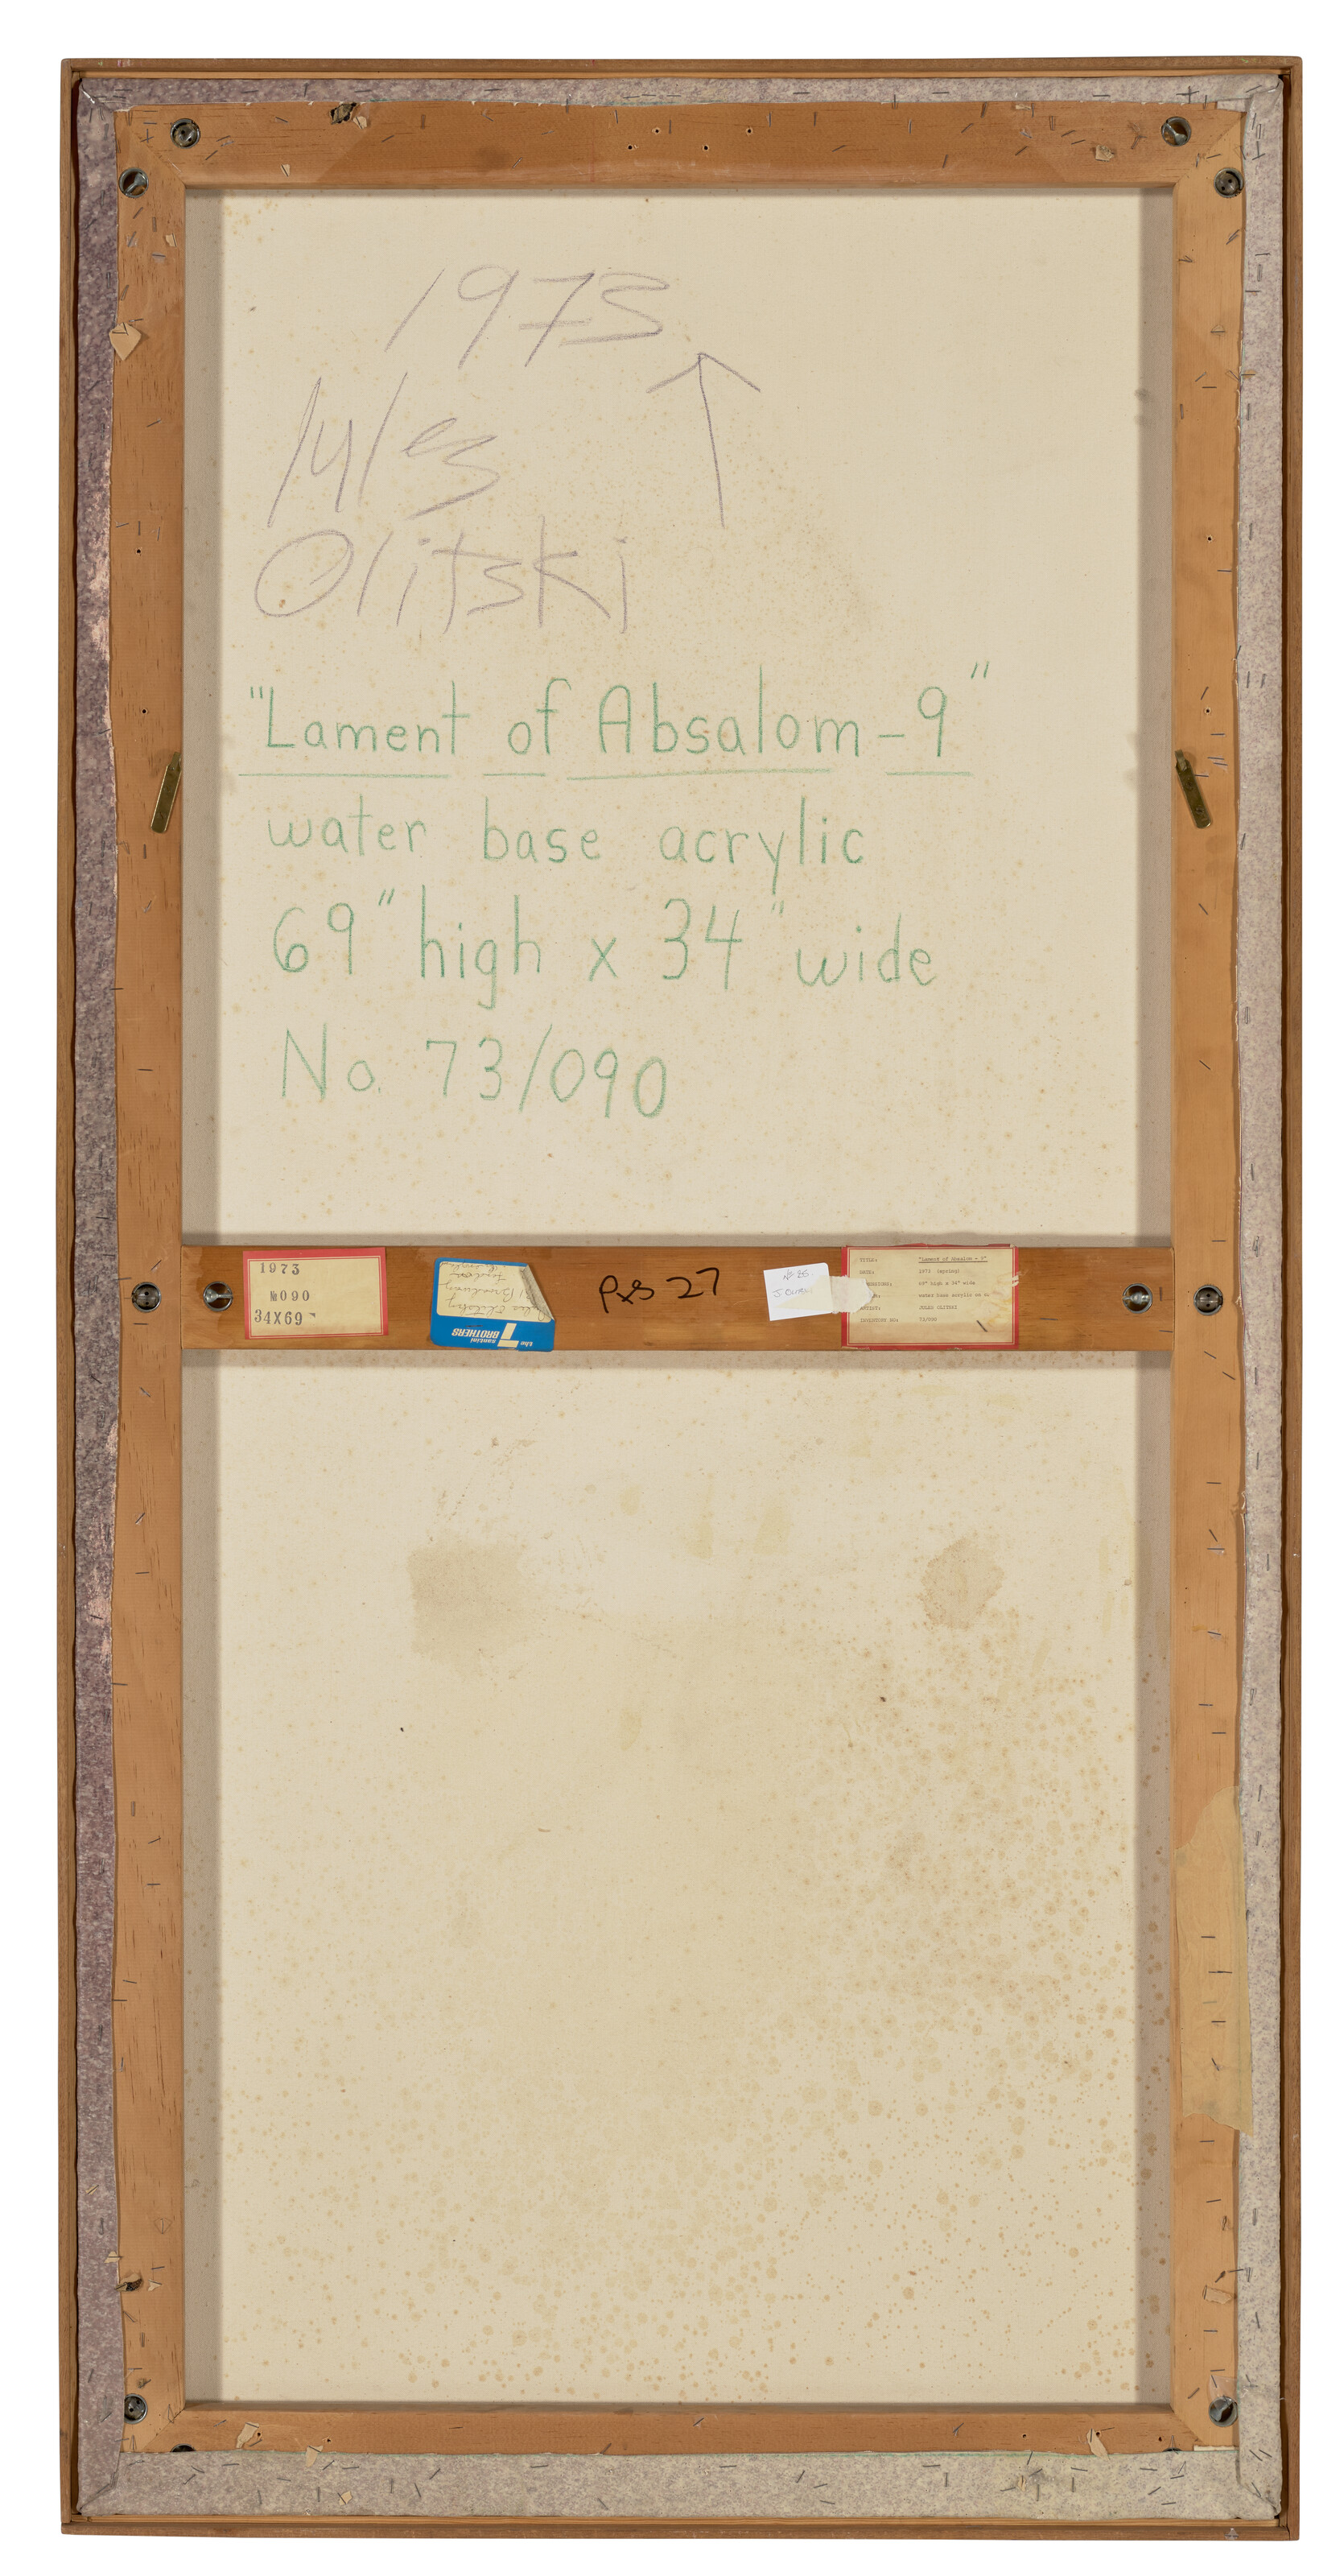 1973
Jules
Olitski
"Lament of Absalom - 9"
water base acrylic
69" high x 34" wide
No. 73/090
1973
№ 090
34X69
Jules Olitsky
Broadway
the
santini
BROTHERS
27
№ 26.
TITLE: "Lament of Absalom - 9"
DATE: 1973 (spring)
69" high x 34" wide
water base acrylic on
JULES OLITSKI
73/090